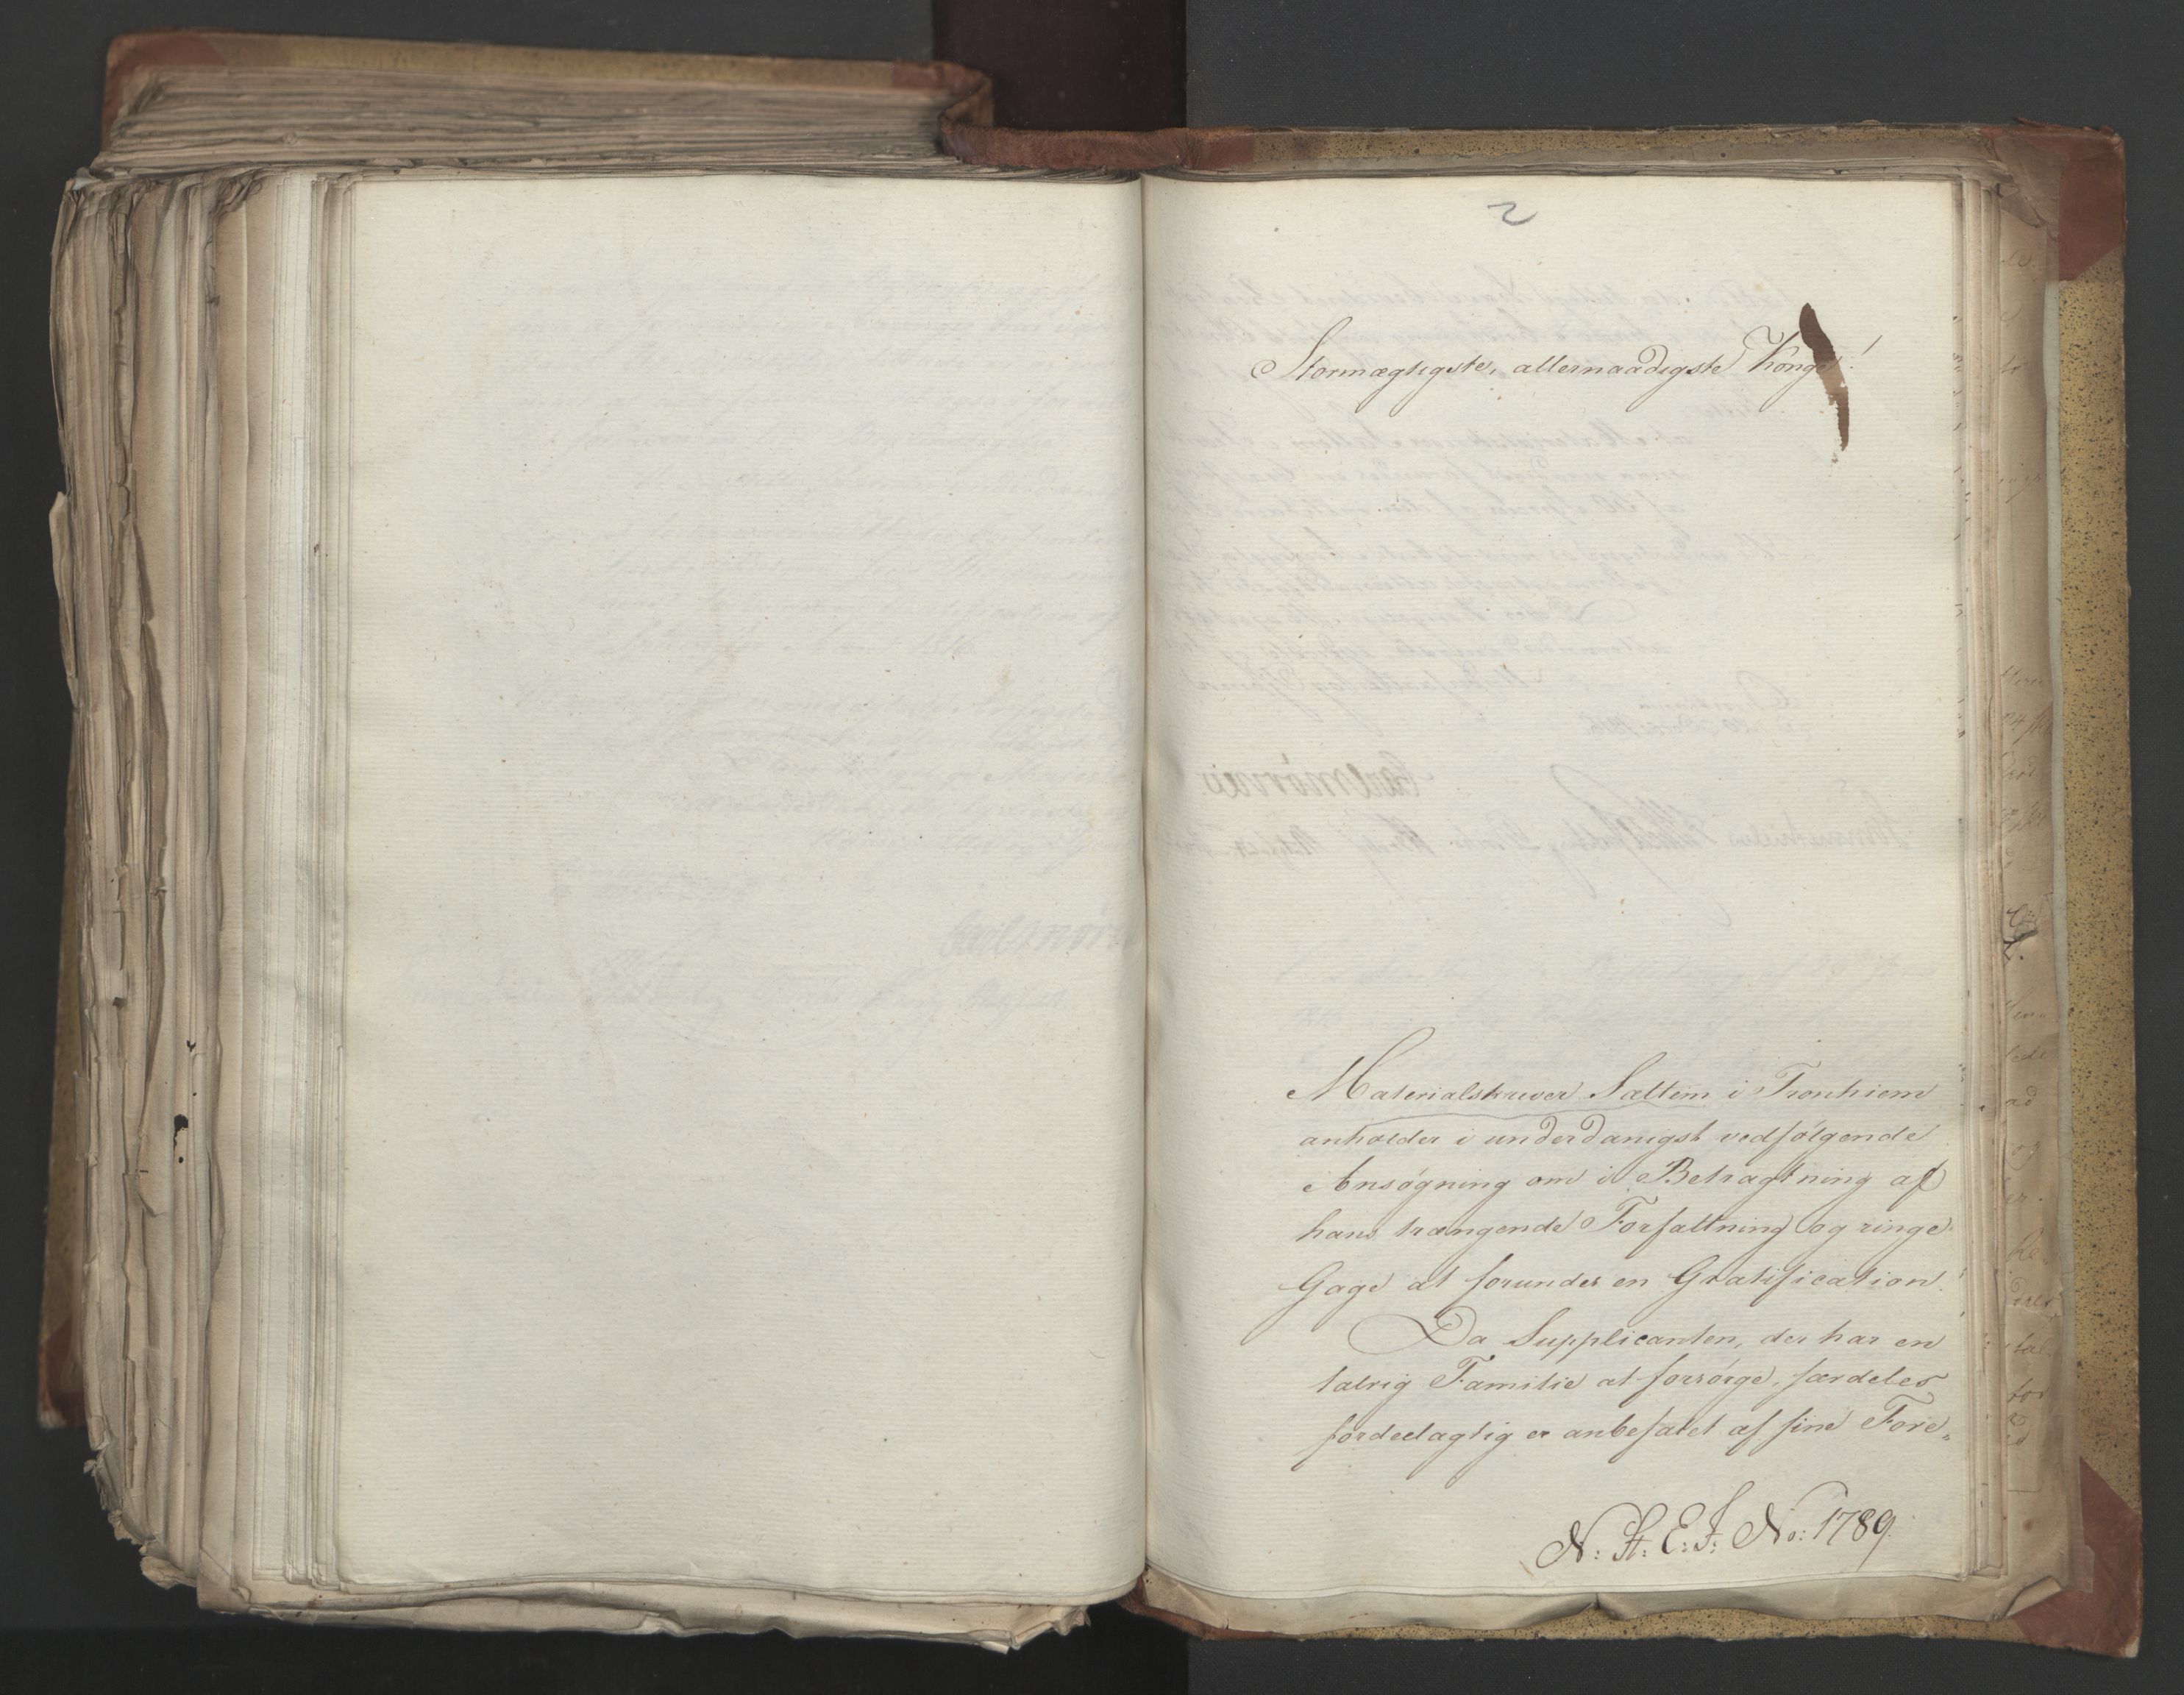 2
Stormægtigste, allernaadigste Konge!
Materialskriver Sættem i Tronhiem
anholder i underdanigst vedfølgende
Ansøgning om i Betragtning af
hans trængende Forfattning og ringe
Gage at forundes en Gratification.
Da Supplicanten, der har en
talrig Familie at forsørge, særdeles
fordeelagtig er anbefalet af sine Fore„
N: St: E: J: No: 1789.